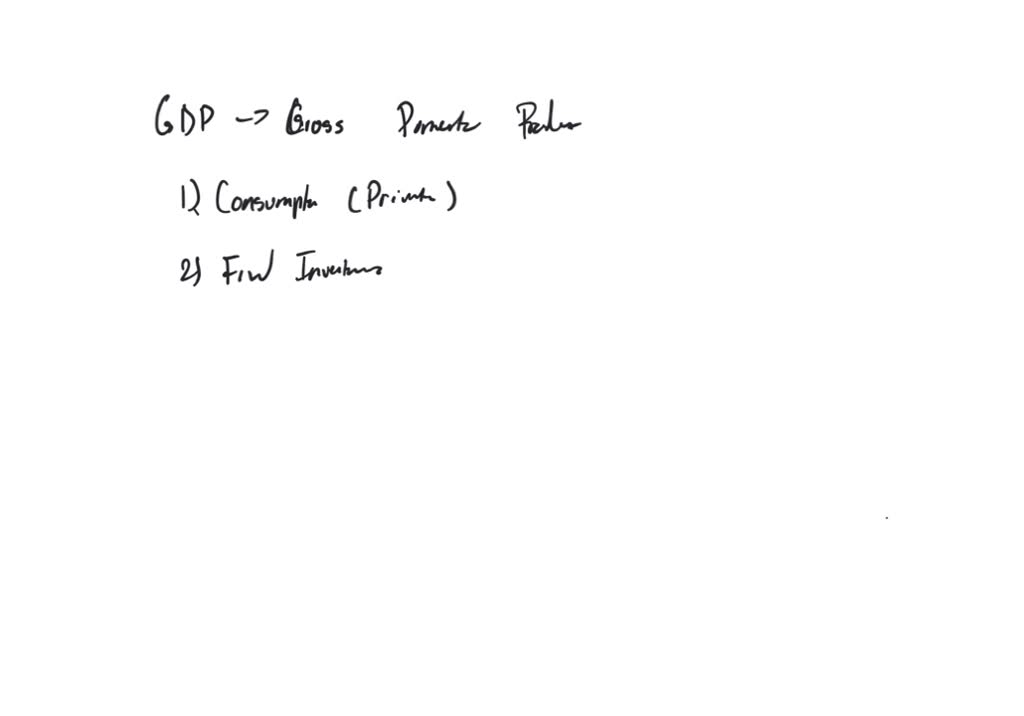 GDP -> Gross Domestic Product
1) Consumption (Private)
2) Final Investment